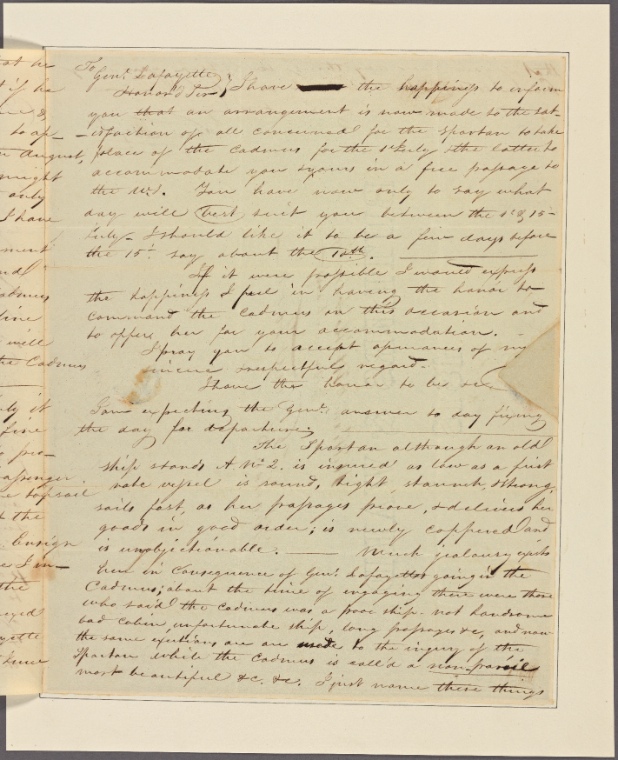 To Genl. Lafayette
Honord Sir, I have the happiness to inform
you that an arrangement is now made to the sat-
isfaction of all concerned for the Spartan to take
place of the Cadmus for the 1st July & the latter to
accommodate you & yours in a free passage to
the U.S. You have now only to say what
day will best suit you between the 1st & 15-
July - I should like it to be a few days before
the 15th say about the 12th.
If it were possible I would express
the happiness I feel in having the honor to
command the Cadmus on this occasion and
to offer her for your accommodation. -
I pray you to accept assurances of my
sincere & respectful regard -
I have the honor to be
I am expecting the Genls. answer to day fixing
the day for departure,
The Spartan although an old
ship stands A No 2. is insured as low as a first
rate vessel is sound, tight, staunch, & strong,
sails fast, as her passages prove, & delivers her
goods in good order; is newly coppered and
is unobjectionable. — Much jealousy exists
here in consequence of Genl. Lafayettes going in the
Cadmus; about the time of engaging there were those
who said the Cadmus was a poor ship - not handsome
bad cabin, unfortunate ship, long passages &c, and now
the same are made to the injury of the
Spartan while the Cadmus is call'd a non pareil
most beautiful &c. &c. I just name these things
only
I have
Cadmus
will
the Cadmus
August,
might
to ap-
passenger
topsail
the
Ensign
I in-
the